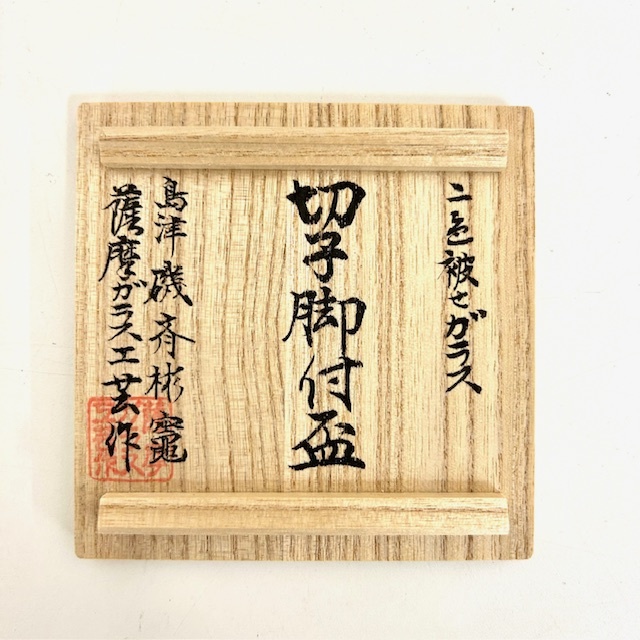 二色被せガラス
切子脚付盃
島津磯斉彬竈
薩摩ガラス工芸作